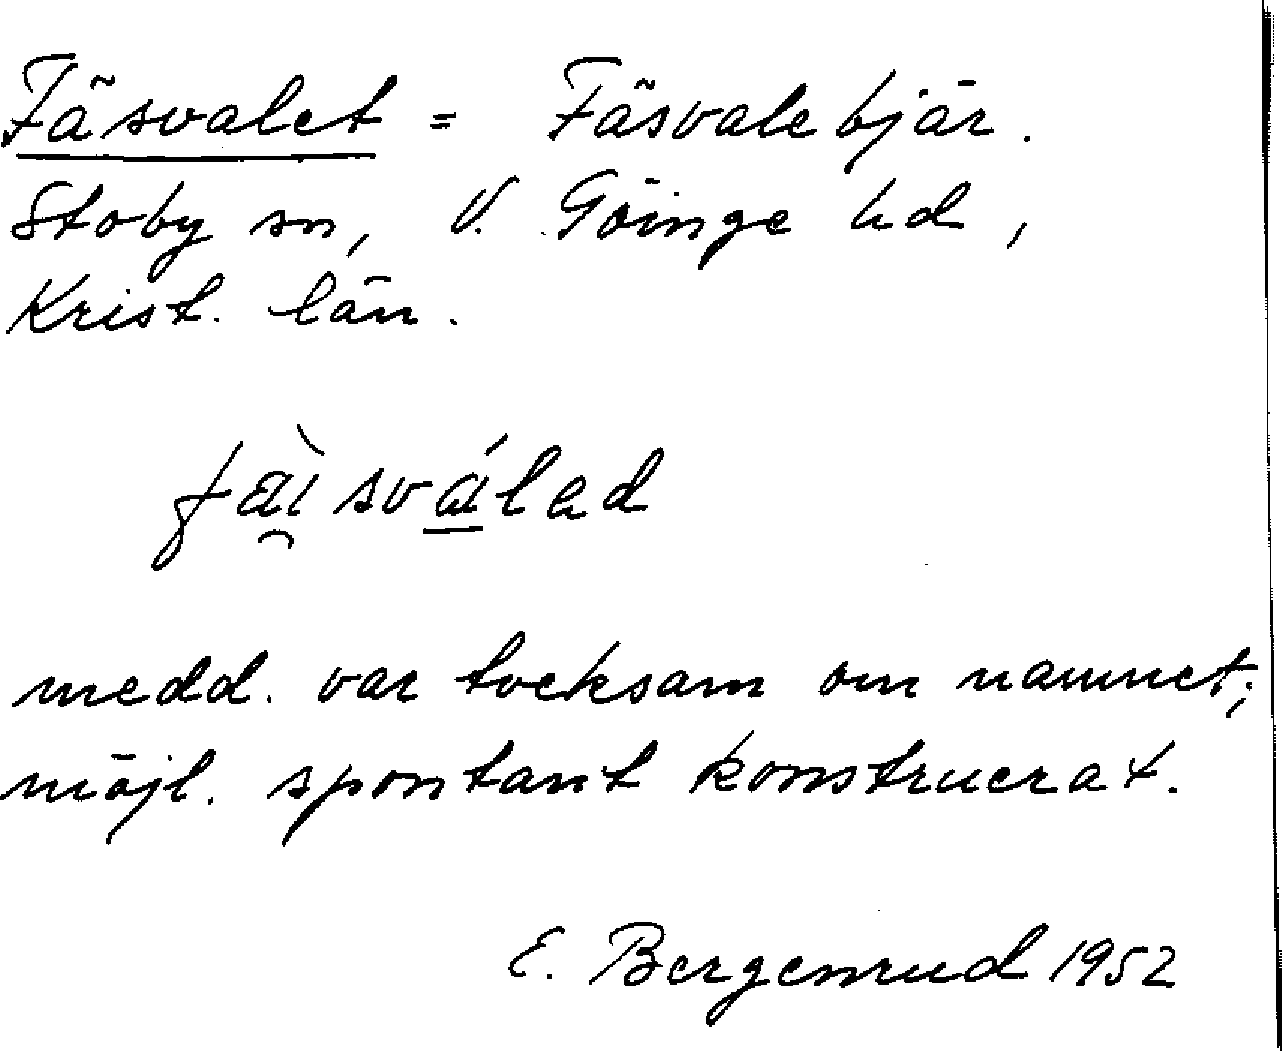 Fäsvalet = Fäsvalebjär.
Stoby sn, V. Göinge hd,
Krist. län.
fäisválad
medd. var tveksam om namnet;
möjl. spontant konstruerat.
E. Bergenrud 1952